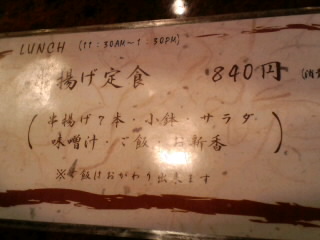 LUNCH (11:30AM~1:30PM)
串揚げ定食 840円
串揚げ7本・小鉢・サラダ
味噌汁・ご飯・お新香
※ご飯はおかわり出来ます